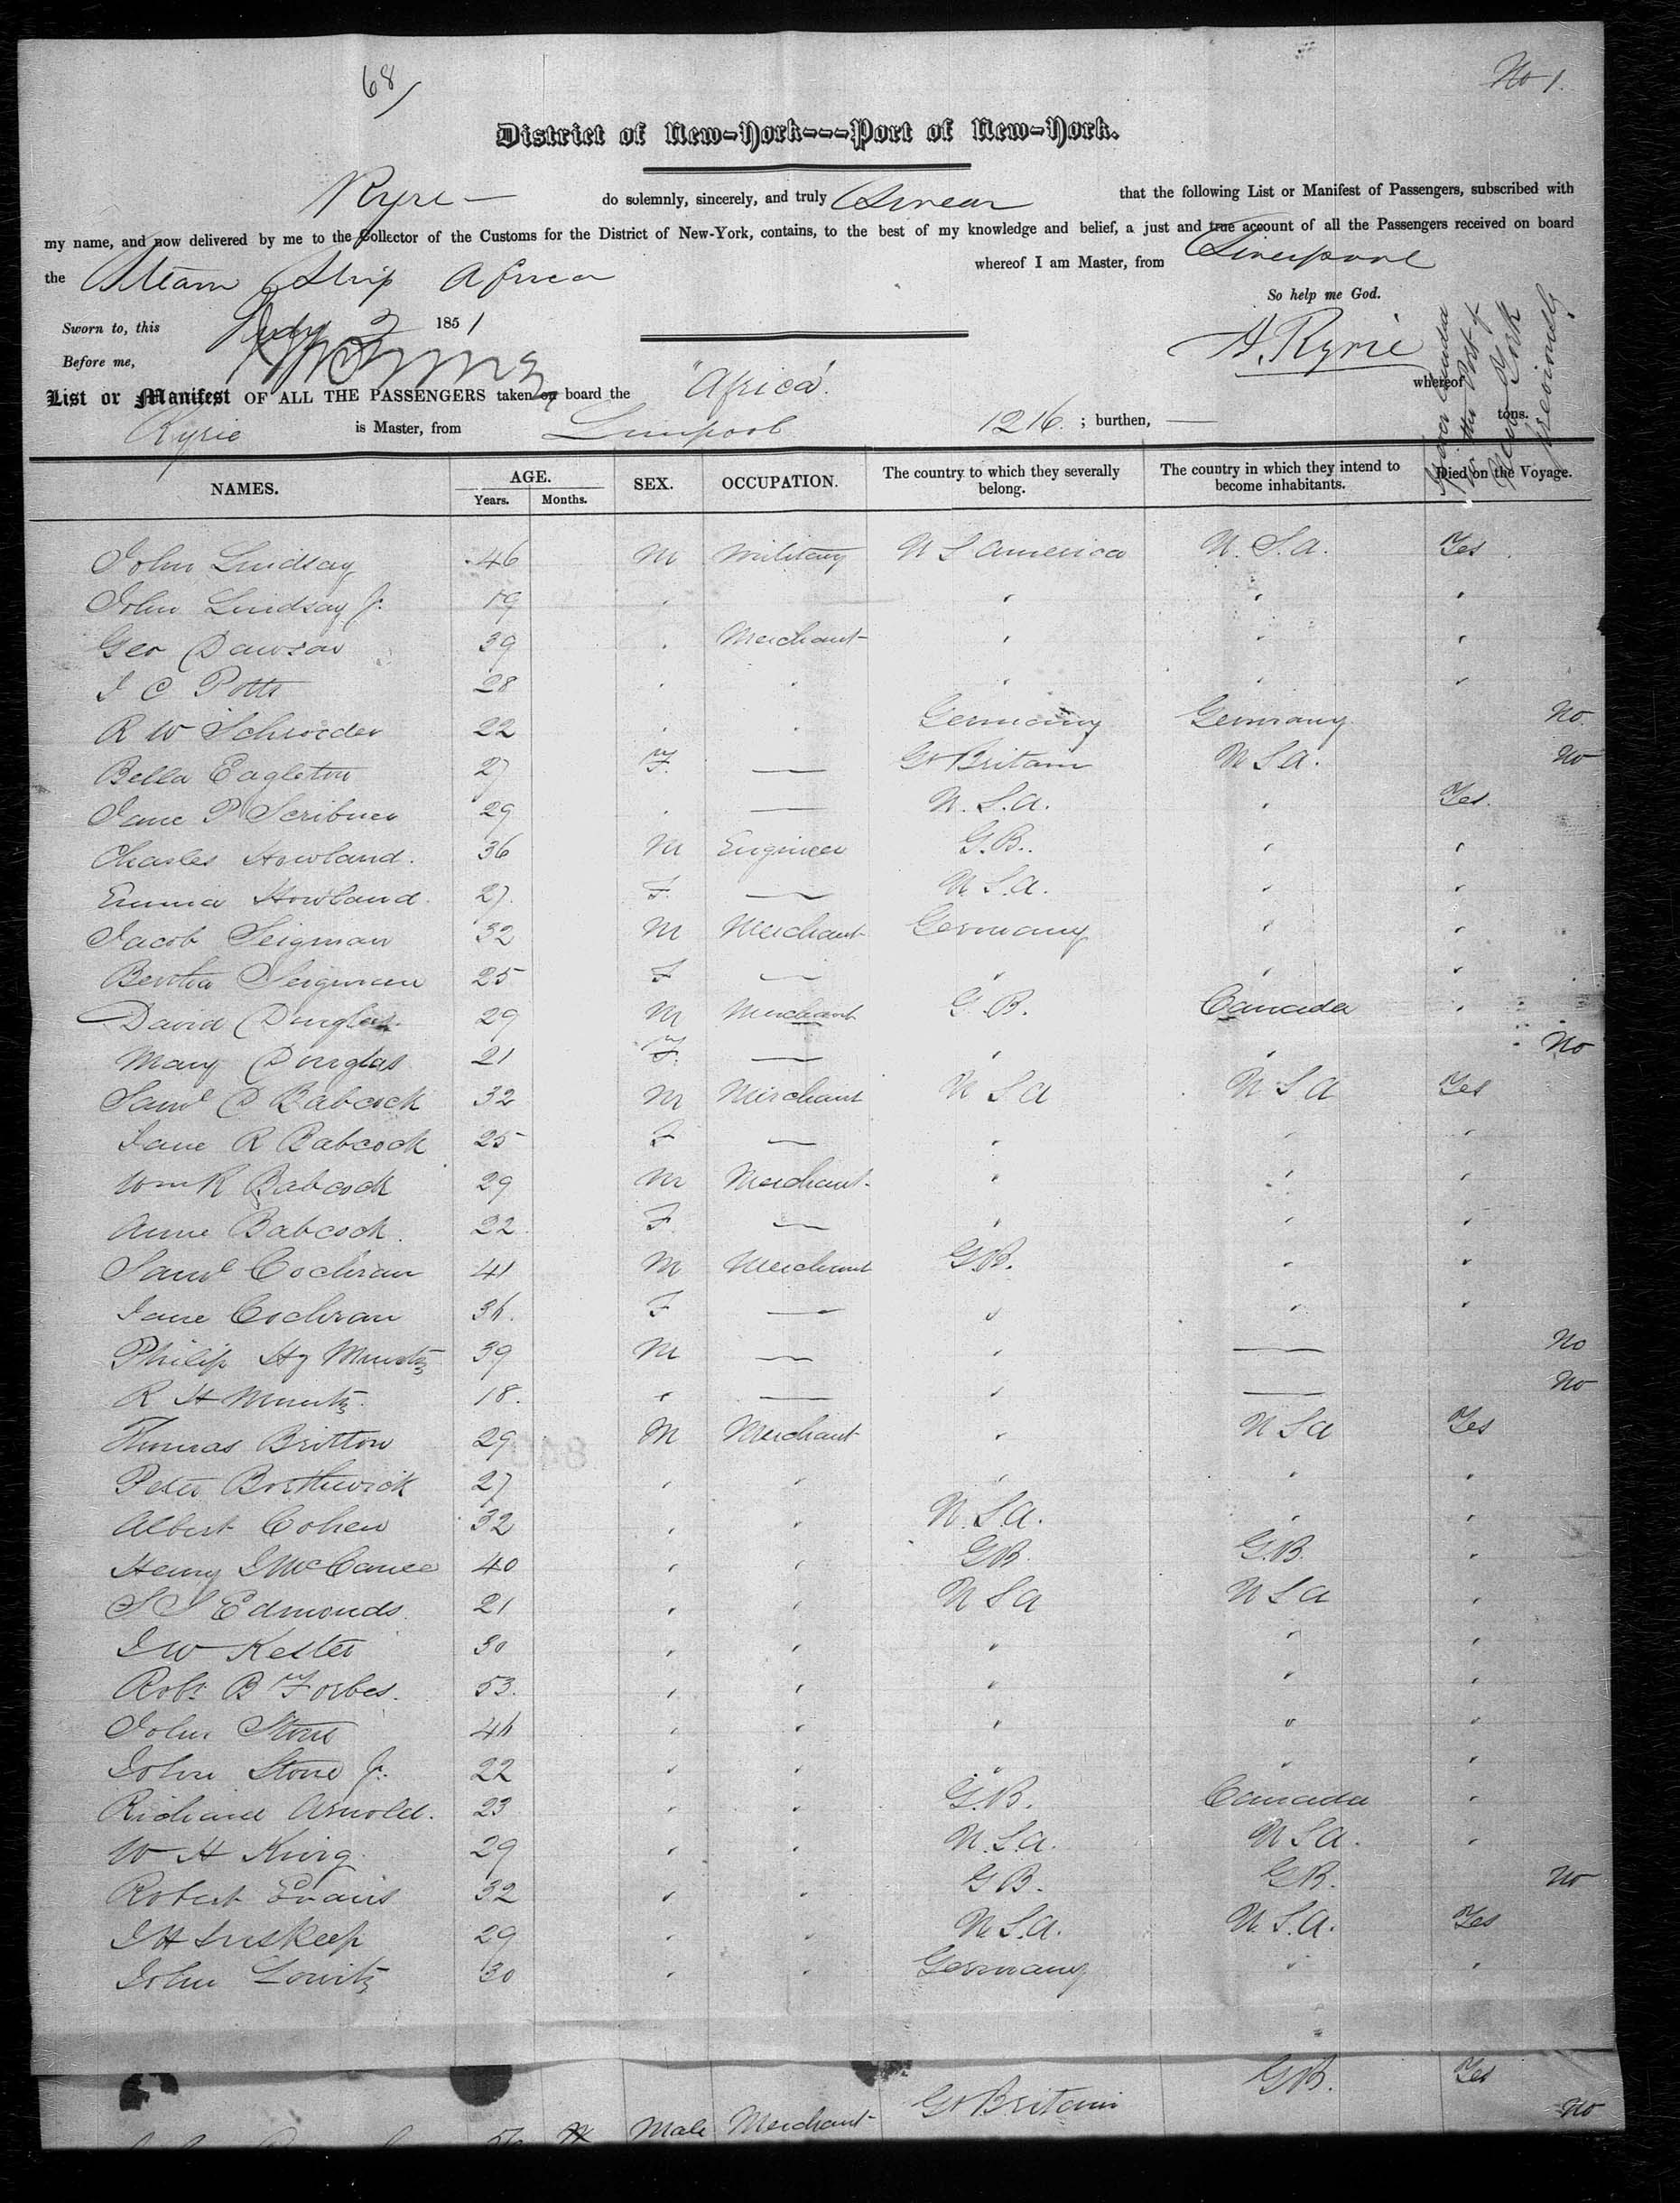 68/
No 1.
District of New-York---Port of New-York.
Ryrie — do solemnly, sincerely, and truly Swear that the following List or Manifest of Passengers, subscribed with
my name, and now delivered by me to the Collector of the Customs for the District of New-York, contains, to the best of my knowledge and belief, a just and true account of all the Passengers received on board
the Steam Ship Africa whereof I am Master, from Liverpool
So help me God.
Sworn to, this July 2 1851
A. Ryrie
Before me,
List or Manifest OF ALL THE PASSENGERS taken on board the "Africa". whereof
Ryrie is Master, from Liverpool 1216. ; burthen, — tons.
previously
NAMES. AGE. Years. Months. SEX. OCCUPATION. The country to which they severally belong. The country in which they intend to become inhabitants. Died on the Voyage.
John Lindsay 46 M Military U S America U. S. A. Yes
John Lindsay Jr. 19 " " " "
Geo Dawson 39 " Merchant " " "
J C Potts 28 " " " " "
R W Schroeder 22 " " Germany Germany No
Bella Eagleton 27 F. — Gt Britain U S A. No
Jane P Scribner 29 " — U. S. A. " Yes.
Charles Howland. 36 M Engineer G. B. " "
Emma Howland. 27. F. — U S. A. " "
Jacob Seigman 32 M Merchant Germany " "
Bertha Seigman 25 F — " " "
David Douglas 29 M Merchant G. B. Canada "
Mary Douglas 21 F. — " " No
Saml D Babcock 32 M Merchant U S A U S A Yes
Jane R Babcock 25 F — " " "
Wm R Babcock 29 M Merchant " " "
Anne Babcock. 22. F. — " " "
Saml Cochran 41 M Merchant G. B. " "
Jane Cochran 36. F — " " "
Philip Hy Muntz 39 M — " — No
R H Muntz. 18. " — " — No
Thomas Britton 29 M Merchant " U S A Yes
Peter Borthwick 27 " " " " "
Albert Cohen 32 " " U. S. A. " "
Henry J McCance 40 " " G B. G. B. "
S S Edmonds. 21 " " U S A U S A "
J W Kester 30 " " " " "
Robt B Forbes. 53. " " " " "
John Stone 46 " " " " "
John Stone Jr. 22 " " " " "
Richard Arnold. 23 " " G. B. Canada "
W H King 29 " " U. S. A. U S A. "
Robert Evans 32 " " G B. G B. No
J H Inskeep 29 " " U S. A. U. S. A. Yes
John Lowitz 30 " " Germany " "
G B. Yes
Male Merchant Gt Britain No